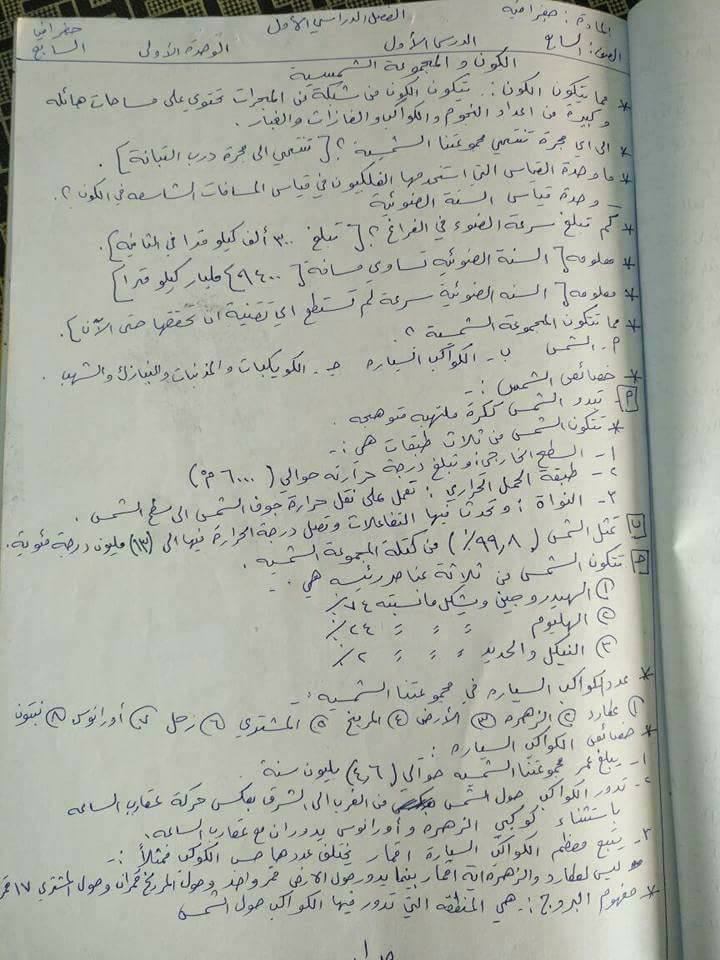 المادة: جغرافية الفصل الدراسي الأول جغرافيا
الصف: السابع الدرس الأول الوحدة الأولى السابع
الكون و المجموعة الشمسية
* مما يتكون الكون: يتكون الكون من شبكة من المجرات تحتوي على مساحات هائله
وكبيرة من اعداد النجوم والكواكب والغازات والغبار.
* الى اي مجرة تنتمي مجموعتنا الشمسية؟ [تنتمي الى مجرة درب التبانة].
* ما وحدة القياس التي استخدمها الفلكيون في قياس المسافات الشاسعه في الكون؟.
- وحدة قياس السنة الضوئية
* كم تبلغ سرعة الضوء في الفراغ؟ [تبلغ ٣٠٠ ألف كيلو مترا في الثانية].
* معلومه [السنة الضوئية تساوي مسافة [٩٤٠٠] مليار كيلو مترا]
* معلومه [السنه الضوئية سرعة لم تستطع اي تقنية ان تحققها حتى الآن].
* مما تتكون المجموعة الشمسية؟.
أ- الشمس ب- الكواكب السياره جـ- الكويكبات والمذنبات والنيازك والشهب.
* خصائص الشمس:-
أ- تبدو الشمس ككرة ملتهبه متوهجه.
* تتكون الشمس من ثلاث طبقات هي:-
١- السطح الخارجي: وتبلغ درجة حرارته حوالي (٦٠٠٠ م°)
٢- طبقة الحمل الحراري: تعمل على نقل حرارة جوف الشمس الى سطح الشمس.
٣- النواة: وتحدث فيها التفاعلات وتصل درجة الحرارة فيها الى (١٣) مليون درجة مئوية.
ب تمثل الشمس (٩٩,٨٪) من كتلة المجموعة الشمسيه.
ج تتكون الشمس من ثلاثة عناصر رئيسه هي:-
① الهيدروجين ويشكل ما نسبته ٧٤٪
② الهليوم = = ٢٤٪
③ النيكل والحديد = = ٢٪
* عدد الكواكب السياره في مجموعتنا الشمسيه:-
① عطارد ② الزهره ③ الأرض ④ المريخ ⑤ المشتري ⑥ زحل ⑦ أورانوس ⑧ نبتون
* خصائص الكواكب السياره:
١- يبلغ عمر مجموعتنا الشمسيه حوالي (٤,٦) بليون سنة.
٢- تدور الكواكب حول الشمس من الغرب الى الشرق بعكس حركة عقارب الساعه
باستثناء كوكبي الزهره وأورانوس يدوران مع عقارب الساعه.
٣- يتبع معظم الكواكب السيارة اقمار يختلف عددها حسب الكوكب فمثلاً:-
ليس لعطارد والزهره اية اقمار بينما يدور حول الارض قمر واحد وحول المريخ قمران وحول المشتري ١٧ قمر
* مفهوم البروج:- هي المنطقه التي تدور فيها الكواكب حول الشمس